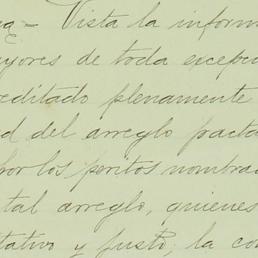 - Vista la inform
yores de toda excepc
editado plenamente
d del arreglo pacta
por los peritos nombra
tal arreglo, quienes
tativo y justo, la co